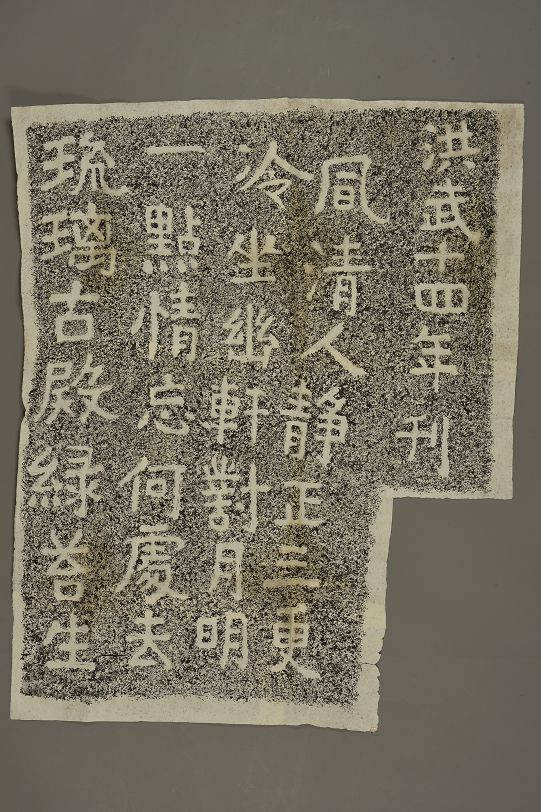 洪武十四年刊
風清人靜正三更
冷坐幽軒對月明
一點情忘何處去
琉璃古殿綠苔生